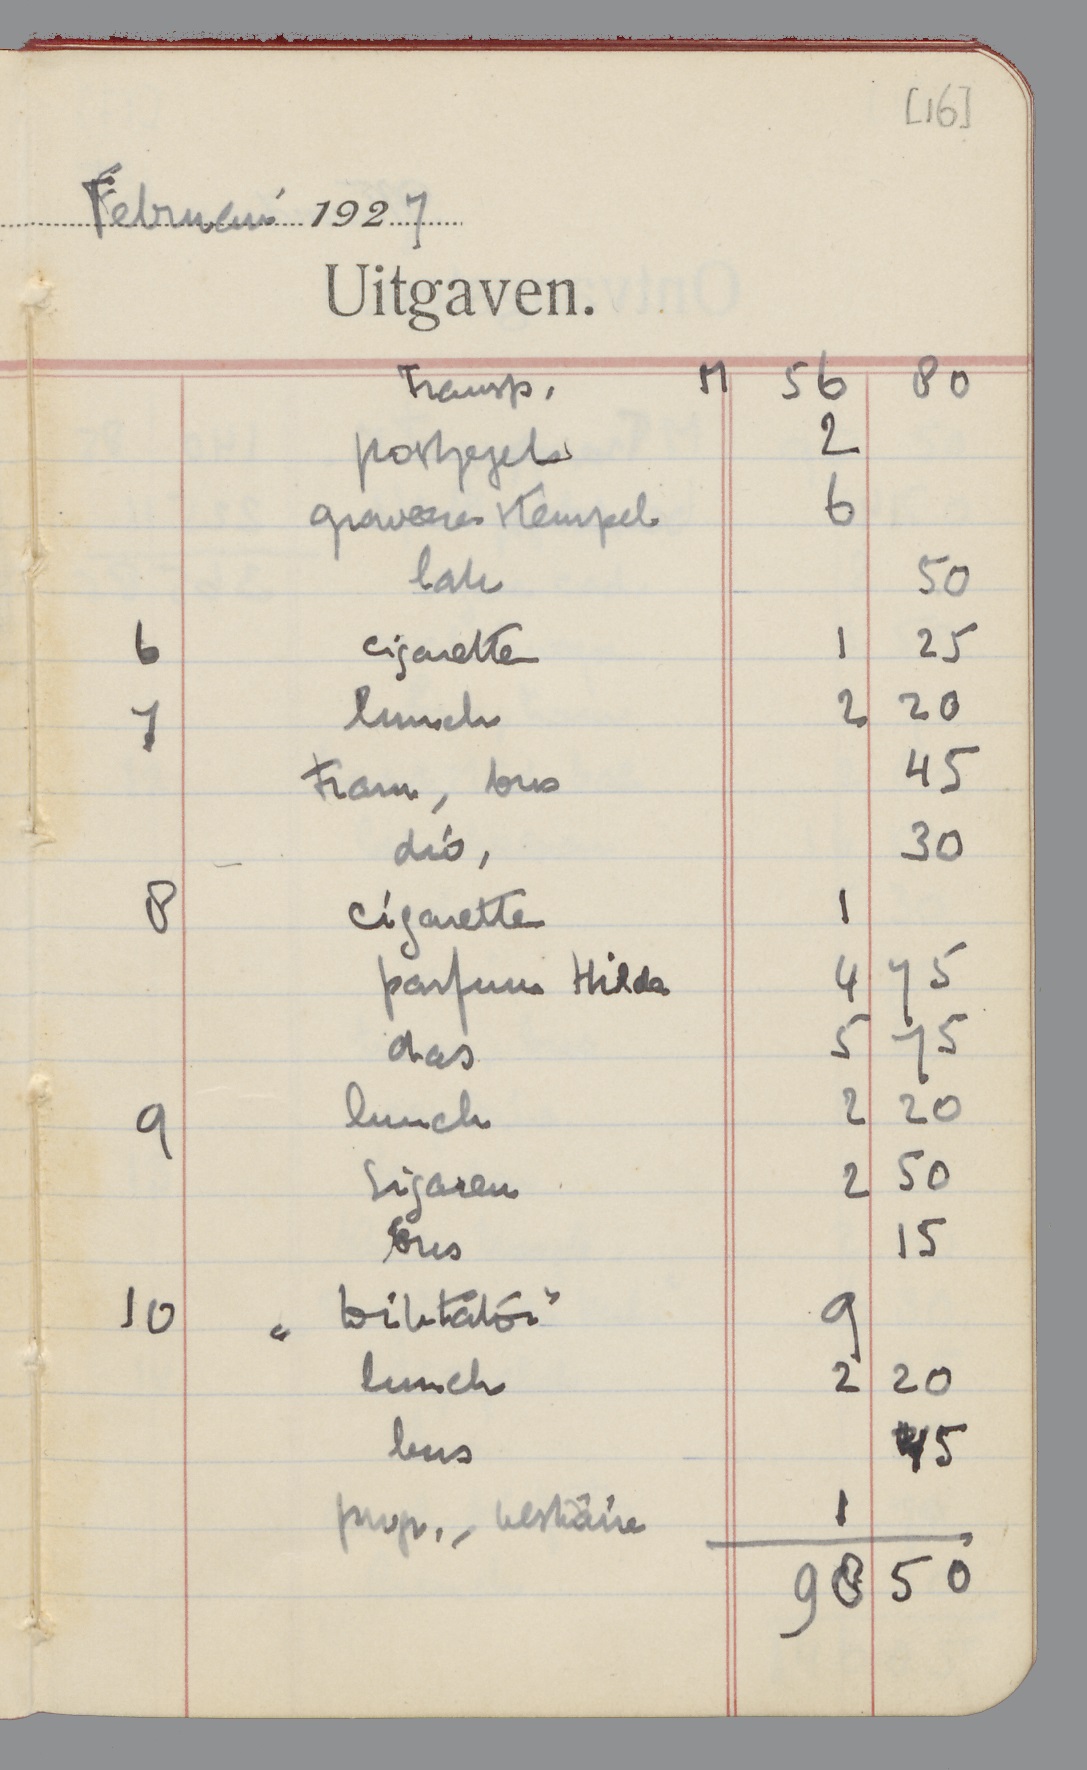 [16]
Februari 1927
Uitgaven.
Transp. M 56 80
postzegels 2
graveeren stempel 6
lak 50
6 cigaretten 1 25
7 lunch 2 20
Tram, bus 45
dió, 30
8 cigaretten 1
parfum Hilda 4 75
das 5 75
9 lunch 2 20
Sigaren 2 50
bus 15
10 9
lunch 2 20
bus 45
progr., vestiaire 1
98 50